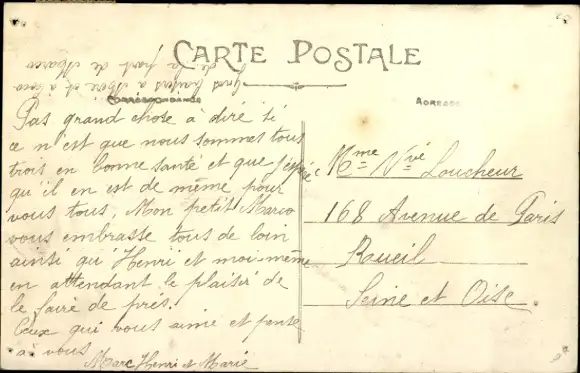 CARTE POSTALE
Gros baisers à Mémé et à Coco
de la part de Marco
CORRESPONDANCE
ADRESSE
Pas grand chose à dire si
ce n'est que nous sommes tous
trois en bonne santé et que j'espère
qu'il en est de même pour
vous tous. Mon petit Marco
vous embrasse tous de loin
ainsi qu'Henri et moi-même
en attendant le plaisir de
le faire de près.
Ceux qui vous aime et pense
à vous
Marc Henri et Marie
Mme Vve Loucheur
168 Avenue de Paris
Rueil
Seine et Oise.